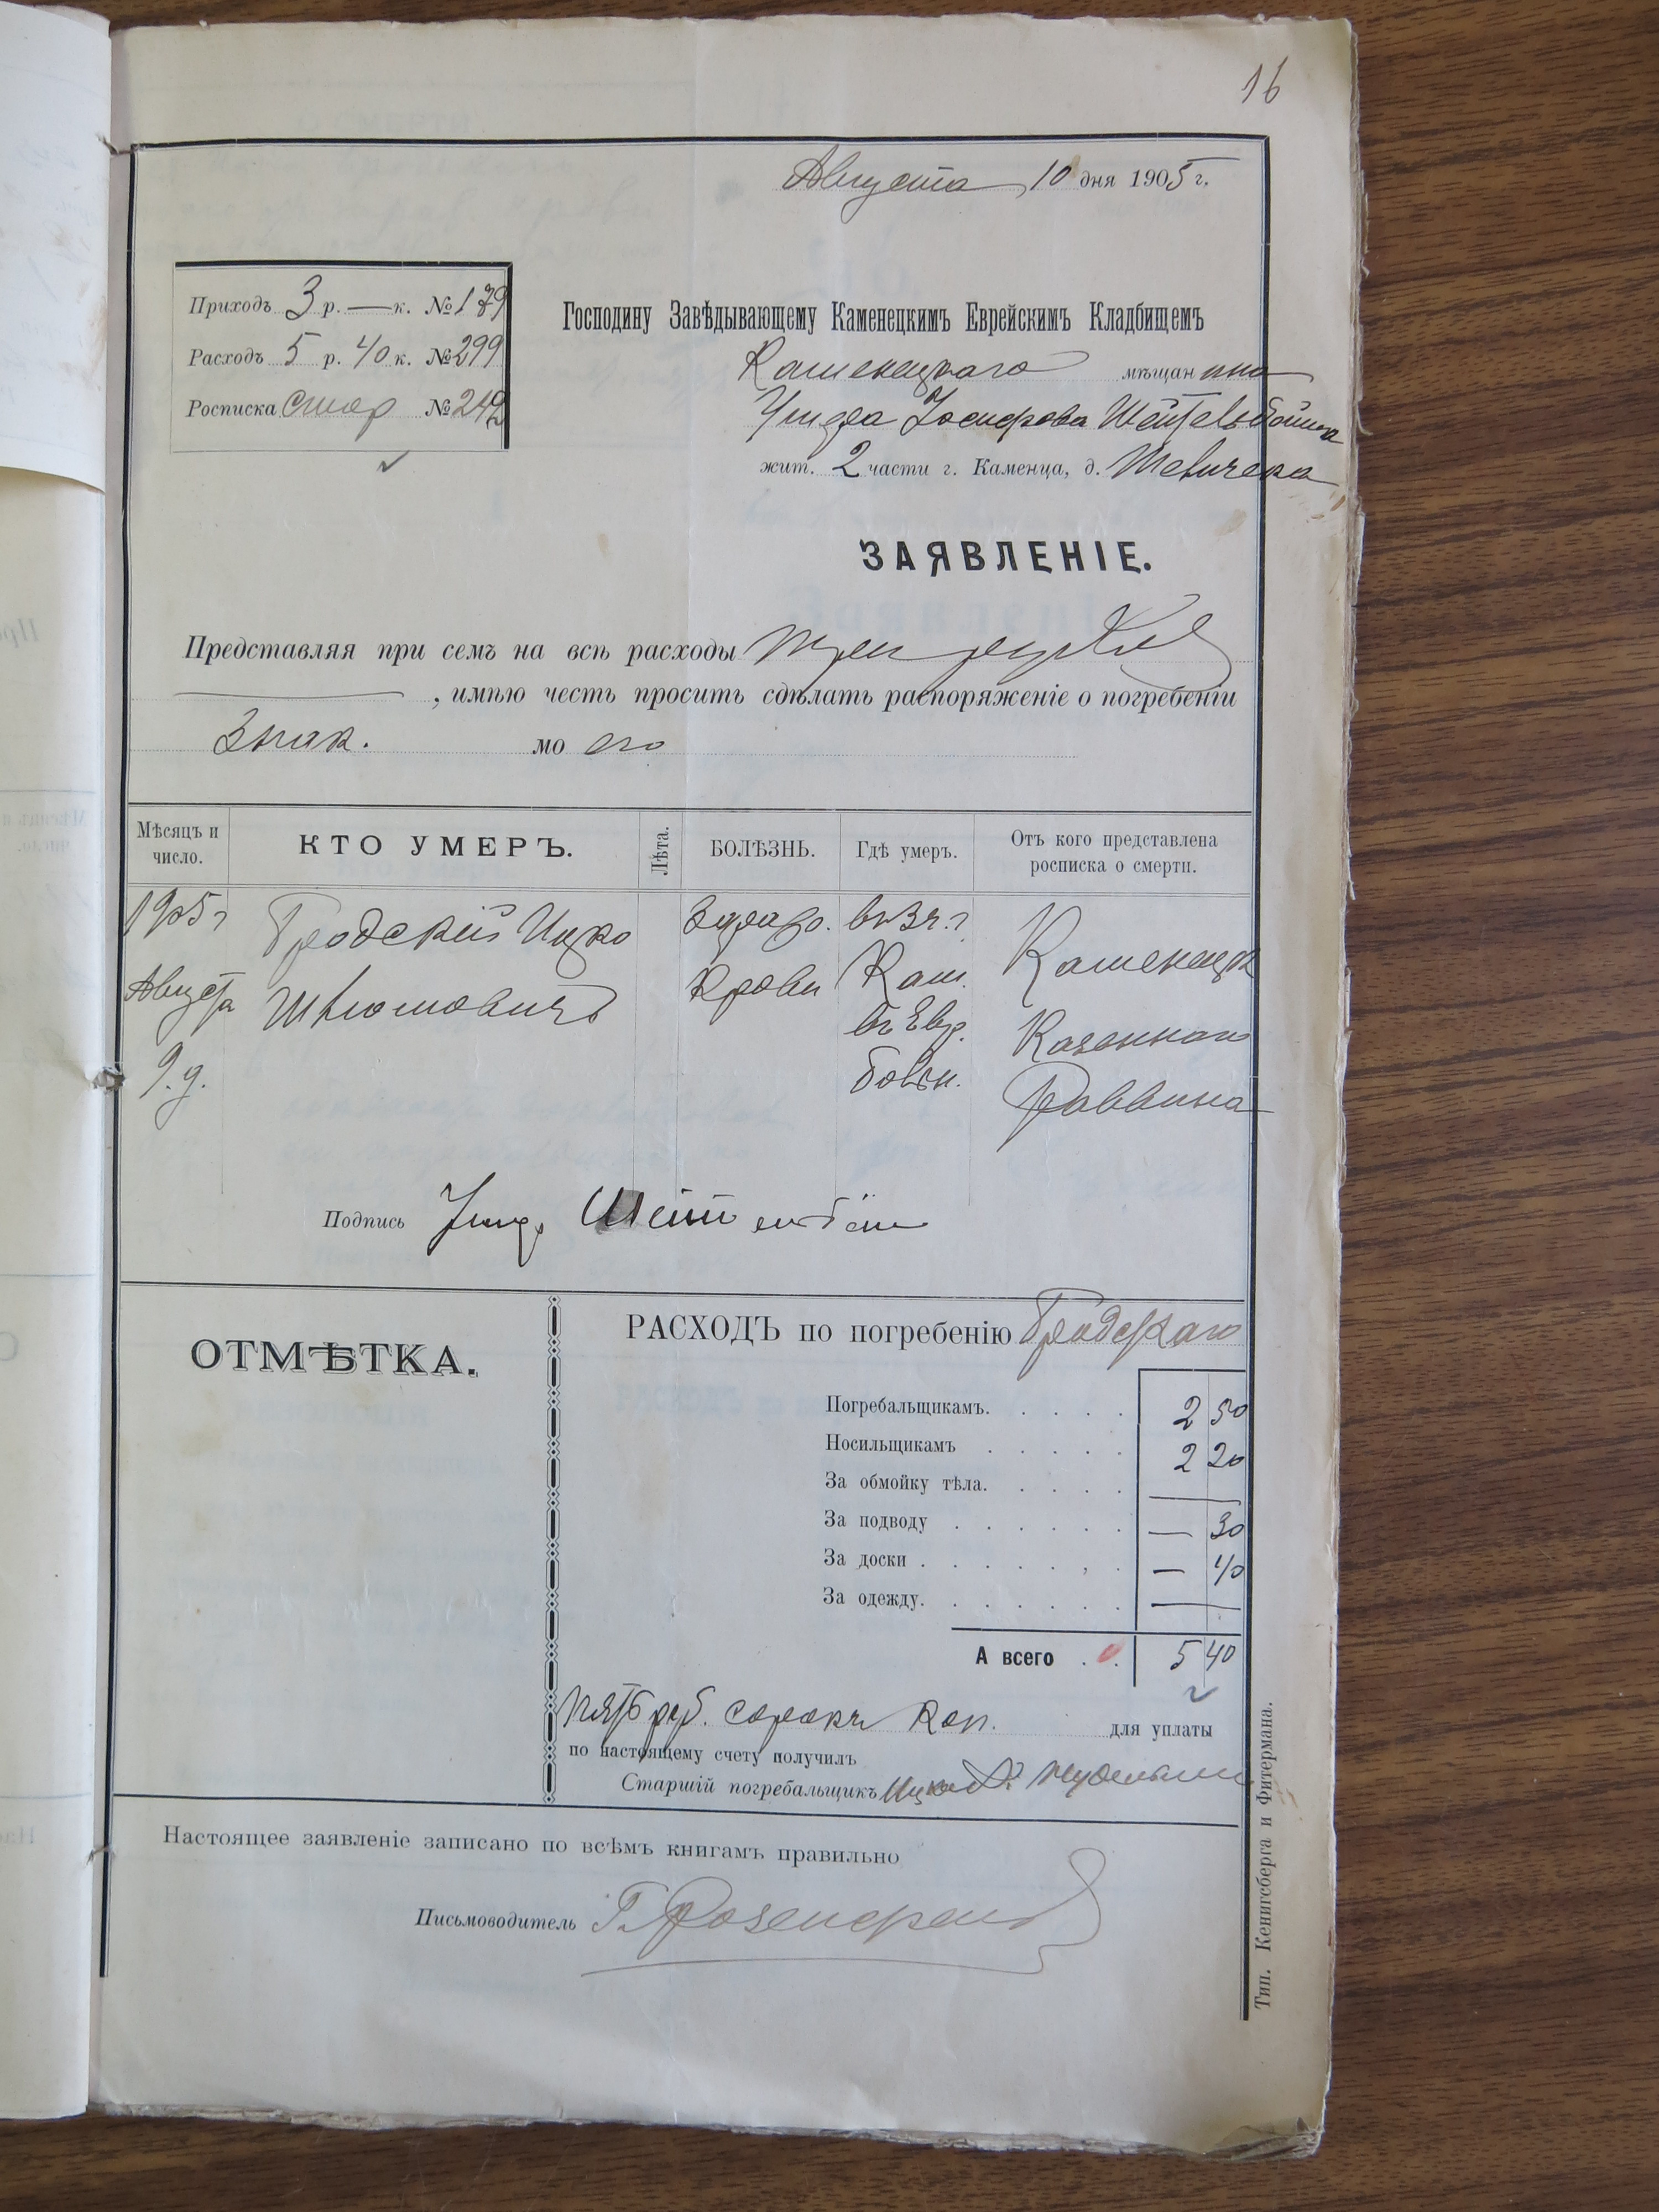 16
Августа 10 дня 1905 г.
Приходъ 3 р. — к. № 179
Расходъ 5 р. 40 к. № 299
Росписка № 242
Господину Завѣдывающему Каменецкимъ Еврейскимъ Кладбищемъ
Каменецкаго мѣщанина
Іосифова
жит. 2 части г. Каменца, д.
ЗАЯВЛЕНІЕ.
Представляя при семъ на всѣ расходы три рубл
—, имѣю честь просить сдѣлать распоряженіе о погребеніи
Знак. мо его
Мѣсяцъ и число.
КТО УМЕРЪ.
Лѣта.
БОЛѢЗНЬ.
Гдѣ умеръ.
Отъ кого представлена росписка о смерти.
1905 г
Августа
9. д.
Бродскій Ицко
Шлiомовичъ
Зараж.
Крови
въ г.
Кам.
въ Евр.
больн.
Каменецк
Казеннаго
Раввина
Подпись
ОТМѢТКА.
РАСХОДЪ по погребенію Бродскаго
Погребальщикамъ. 2 50
Носильщикамъ 2 20
За обмойку тѣла. —
За подводу — 30
За доски — 40
За одежду. —
А всего 5 40
Пять руб. сорокъ коп. для уплаты
по настоящему счету получилъ
Старшій погребальщикъ Ицко
Настоящее заявленіе записано по всѣмъ книгамъ правильно
Письмоводитель Г. Розенфельд
Тип. Кенигсберга и Фитермана.